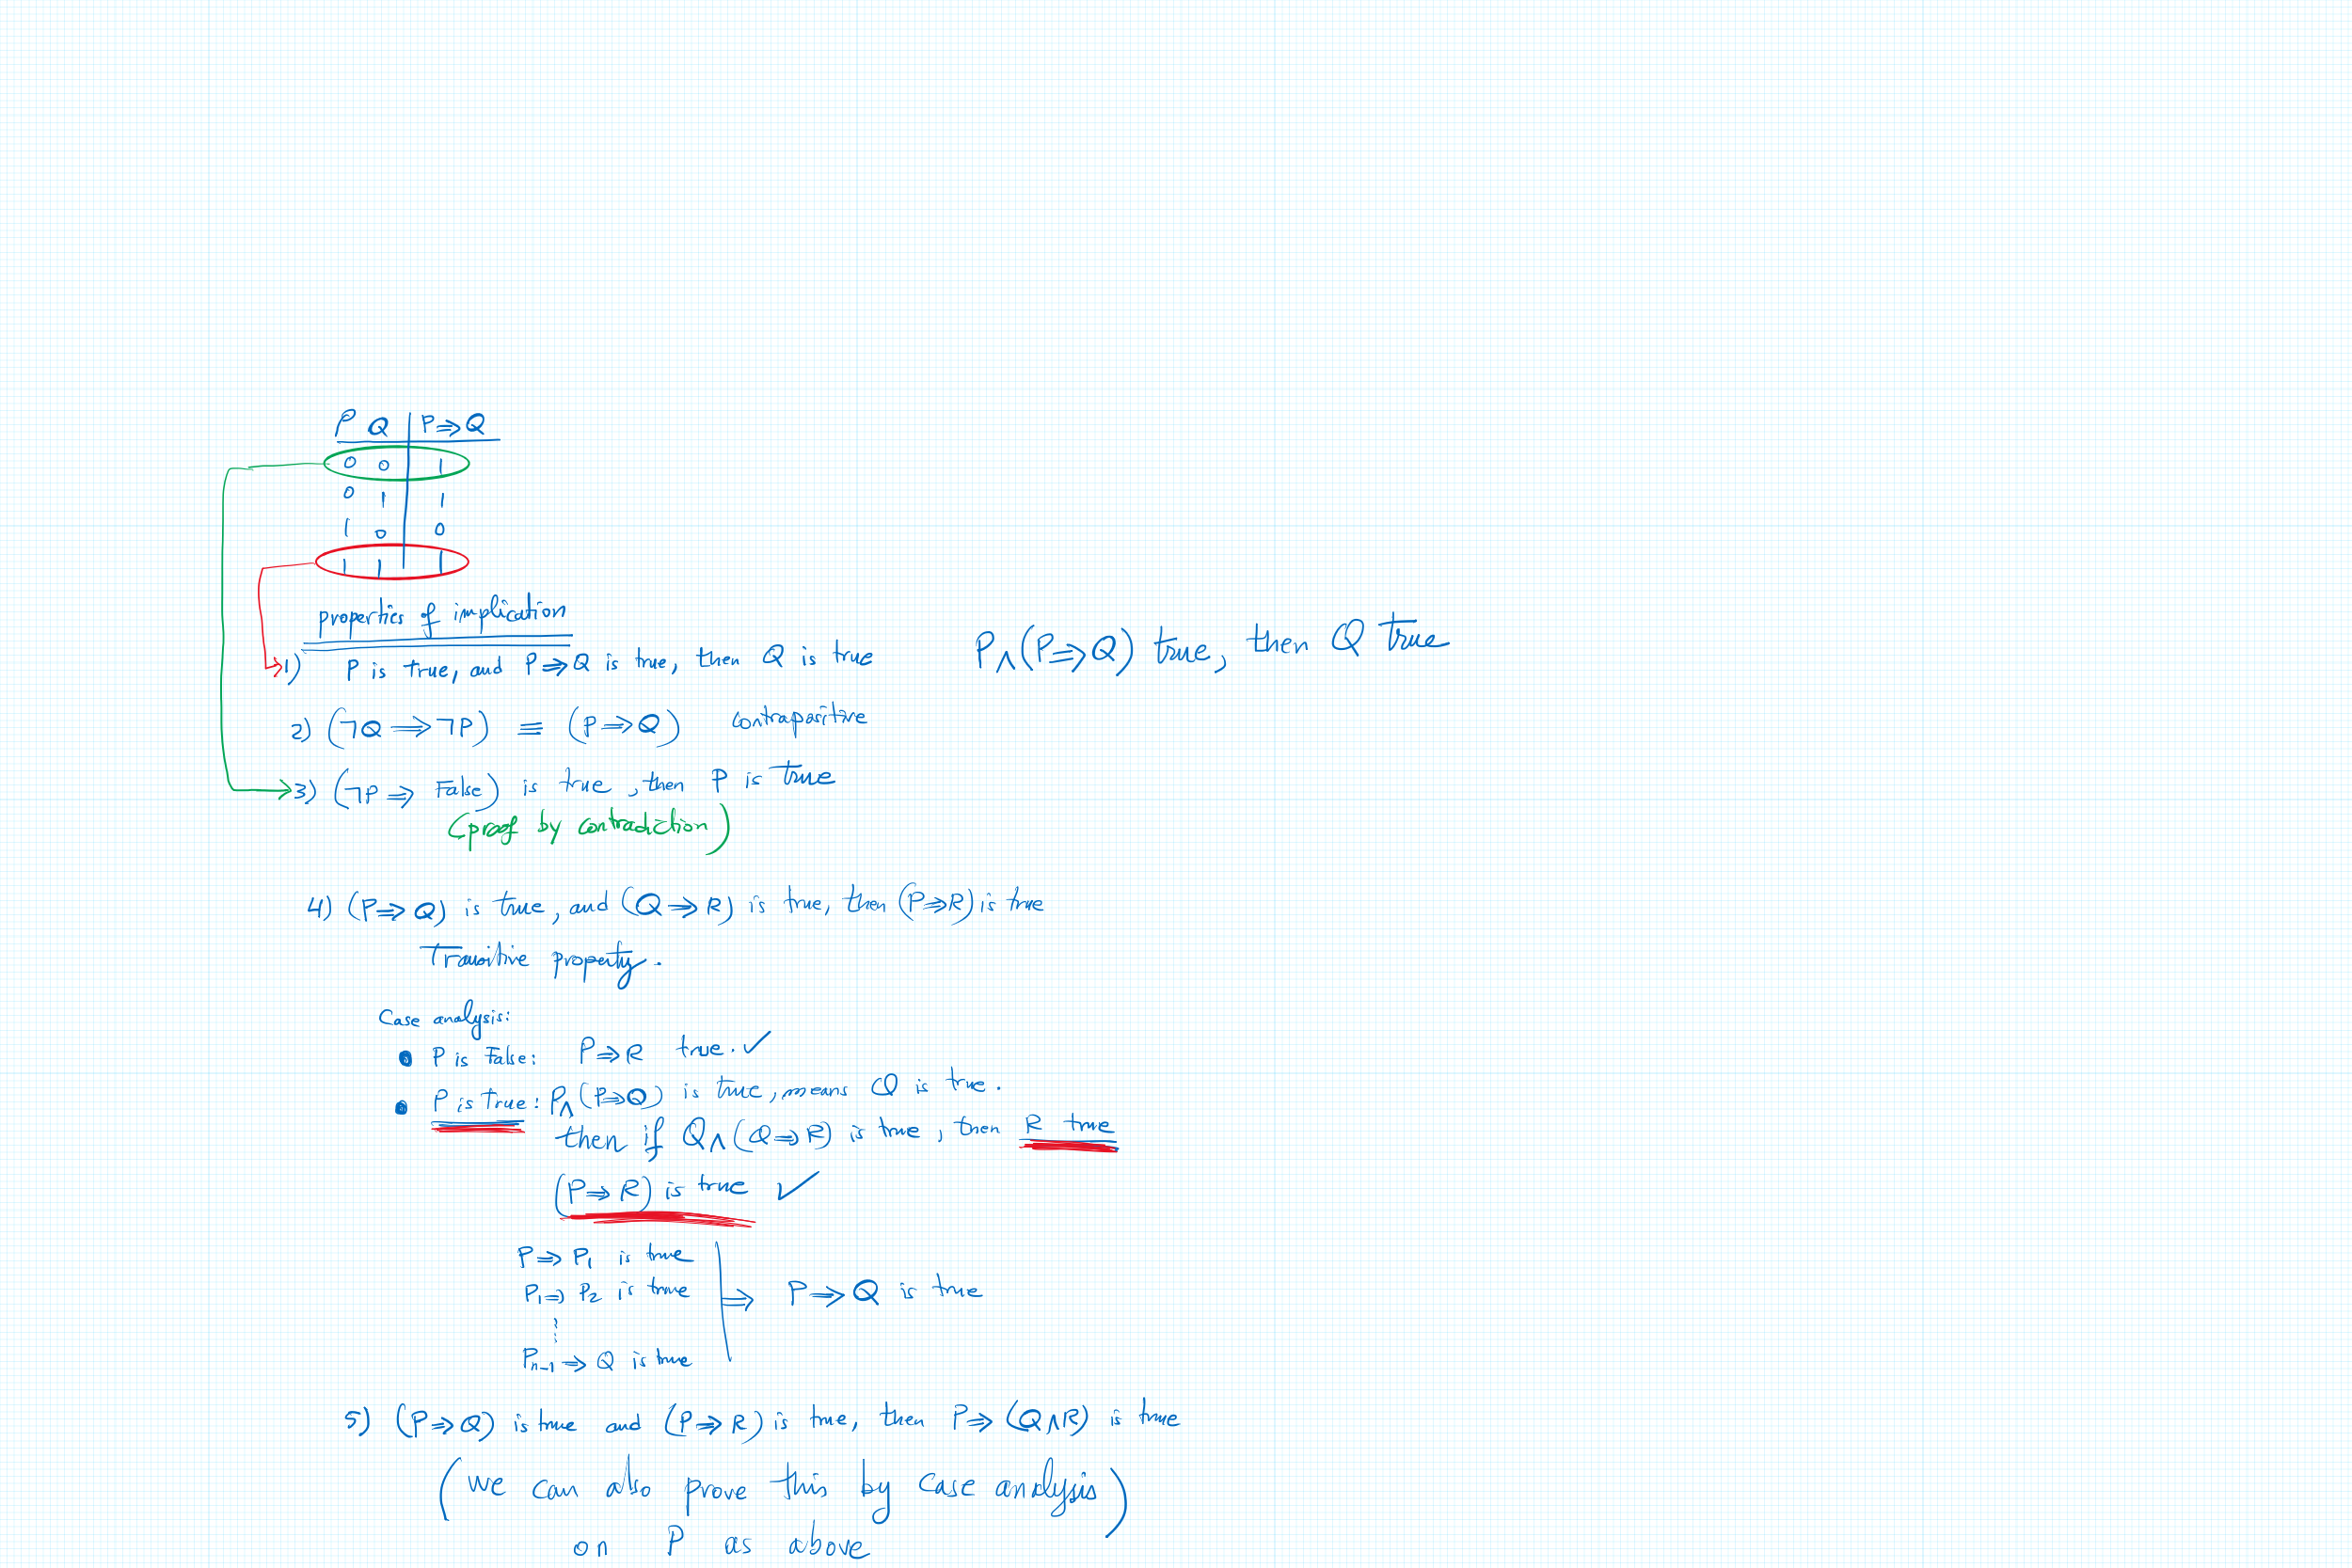 P Q | P⇒Q
0 0 | 1
0 1 | 1
1 0 | 0
1 1 | 1
properties of implication
1) P is true, and P⇒Q is true, then Q is true
P∧(P⇒Q) true, then Q true
2) (¬Q⇒¬P) ≡ (P⇒Q) contrapositive
3) (¬P⇒ False) is true, then P is true
(proof by contradiction)
4) (P⇒Q) is true, and (Q⇒R) is true, then (P⇒R) is true
Transitive property.
Case analysis:
• P is False: P⇒R true. ✓
• P is True: P∧(P⇒Q) is true, means Q is true.
then if Q∧(Q⇒R) is true, then R true
(P⇒R) is true ✓
P⇒P₁ is true
P₁⇒P₂ is true ⇒ P⇒Q is true
⋮
Pₙ₋₁⇒Q is true
5) (P⇒Q) is true and (P⇒R) is true, then P⇒(Q∧R) is true
(we can also prove this by case analysis)
on P as above